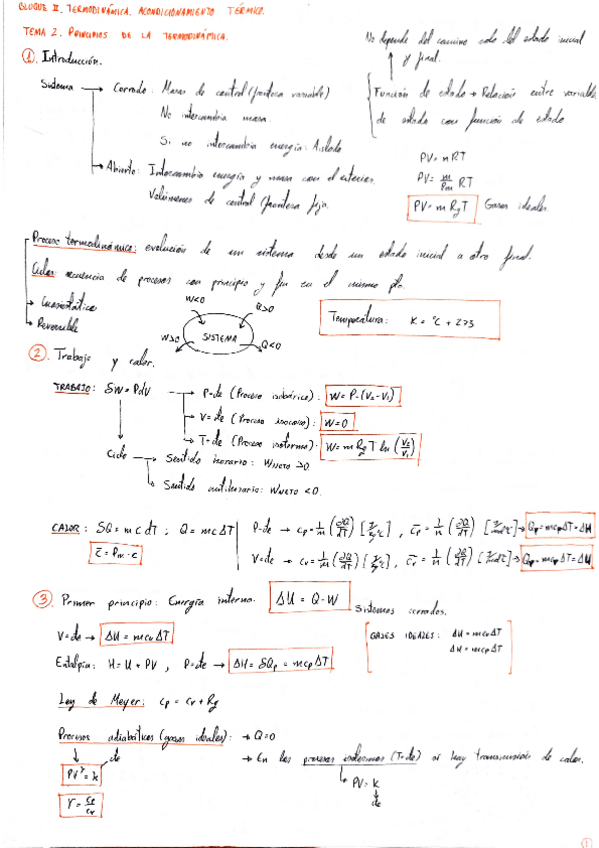 BLOQUE II. TERMODINÁMICA. ACONDICIONAMIENTO TÉRMICO.
TEMA 2. PRINCIPIOS DE LA TERMODINÁMICA.
No depende del camino solo del estado inicial
y final.
① Introducción.
Sistema → Cerrado: Masas de control (frontera variable)
No intercambia masa.
Si no intercambia energía: Aislado
Función de estado → Relación entre variables
de estado con función de estado
→ Abierto: Intercambia energía y masa con el exterior.
Volúmenes de control (frontera fija).
PV = nRT
PV = m/Pm RT
PV = m RgT Gases ideales.
Proceso termodinámico: evolución de un sistema desde un estado inicial a otro final.
Ciclo: secuencia de procesos con principio y fin en el mismo pto.
→ Cuasiestático
→ Reversible
W<0
Q>0
SISTEMA
W>0
Q<0
Temperatura: K = °C + 273
② Trabajo y calor.
TRABAJO: δW = PdV → P=cte (Proceso isobárico): W = P·(V₂-V₁)
→ V=cte (Proceso isocoro): W=0
→ T=cte (Proceso isotermo): W = m Rg T ln (V₂/V₁)
Ciclo → Sentido horario: WNETO >0
→ Sentido antihorario: WNETO <0.
CALOR: δQ = m c dT ; Q = m c ΔT
P=cte → cp = 1/m (∂Q/dT) , c̄p = 1/n (∂Q/dT) → Qp = mcpΔT = ΔH
c̄ = Pm · c
V=cte → cv = 1/m (∂Q/dT) , c̄v = 1/n (∂Q/dT)
③ Primer principio: Energía interna. ΔU = Q - W Sistemas cerrados.
V=cte → ΔU = mcvΔT
GASES IDEALES: ΔU = mcvΔT
ΔH = mcpΔT
Entalpía: H = U + PV , P=cte → ΔH = δQp = mcpΔT
Ley de Meyer: cp = cv + Rg
Procesos adiabáticos (gases ideales): → Q=0
→ En los procesos isotermos (T=cte) sí hay transmisión de calor.
PVᵞ = k
cte
PV = k
cte
γ = cp/cv
1